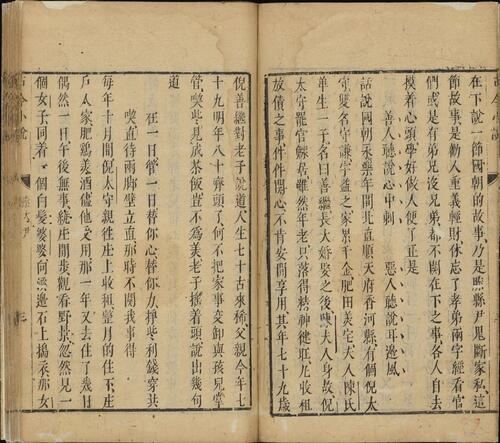 在下說一節國朝的故事乃是滕縣尹鬼斷家私這
節故事是勸人重義輕財休忘了孝弟兩字經看官
們或是有弟兄沒弟兄都不關在下之事各人自去
摸着心頭學好做人便了正是
善人聽說心中刺　惡人聽說耳邊風
話說國朝永樂年間北直順天府香河縣有個倪太
守雙名守謙字益之家累千金肥田美宅夫人陳氏
單生一子名曰善繼長大婚娶之後陳夫人身故倪
太守罷官鰥居雖然年老只落得精神健旺凡收租
放債之事件件關心不肯安閒享用其年七十九歲
倪善繼對老子說道人生七十古來稀父親今年七
十九明年八十齊頭了何不把家事交卸與孩兒掌
管喫些見成茶飯豈不爲美老子搖着頭說出幾句
道
在一日管一日替你心替你力挣些利錢穿共
喫直待兩脚壁立直那時不關我事得
每年十月間倪太守親往庄上收租整月的住下庄
戶人家肥鷄美酒儘他受用那一年又去住了幾日
偶然一日午後無事繞庄閒步觀看野景忽然見一
個女子同着一個白髮婆婆向溪邊石上搗衣那女
古今小說